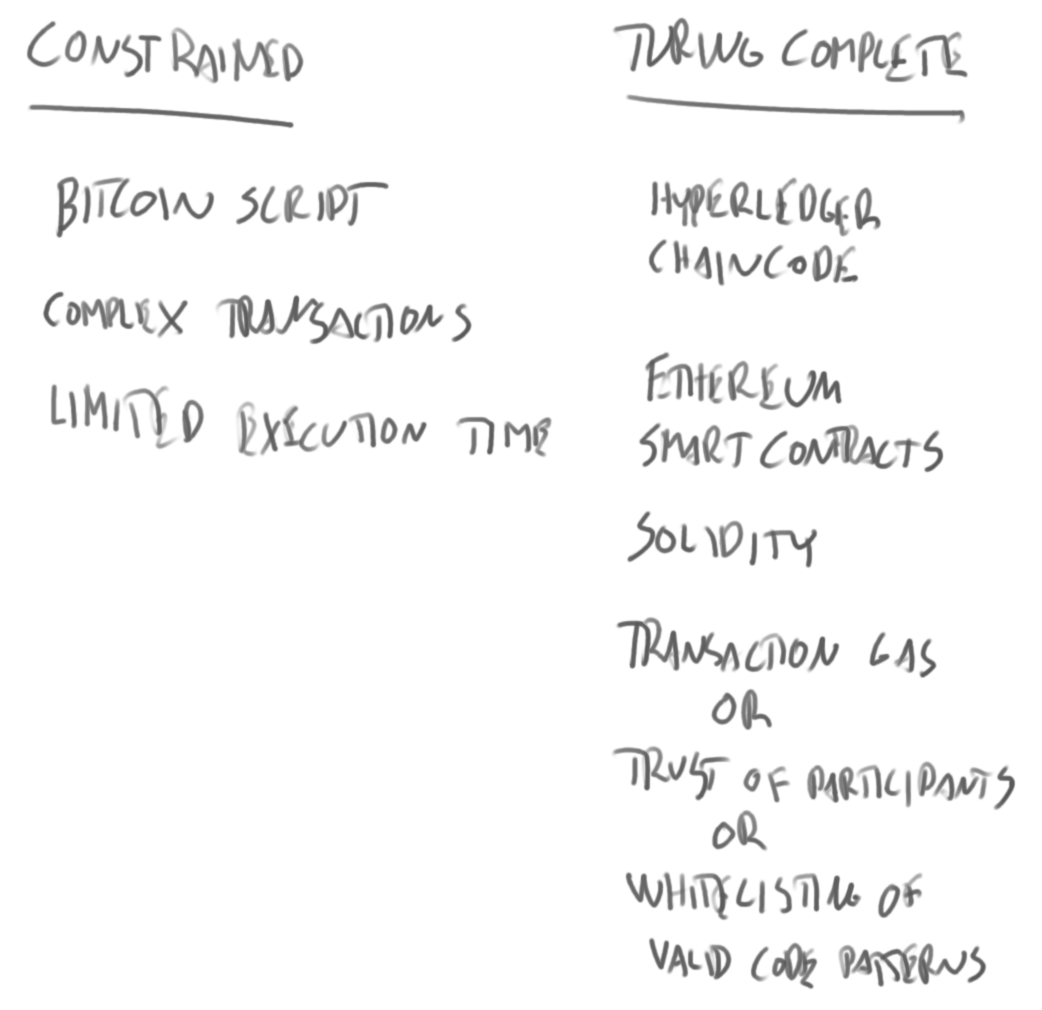 CONSTRAINED
BITCOIN SCRIPT
COMPLEX TRANSACTIONS
LIMITED EXECUTION TIME
TURING COMPLETE
HYPERLEDGER
CHAINCODE
ETHEREUM
SMART CONTRACTS
SOLIDITY
TRANSACTION GAS
OR
TRUST OF PARTICIPANTS
OR
WHITELISTING OF
VALID CODE PATTERNS